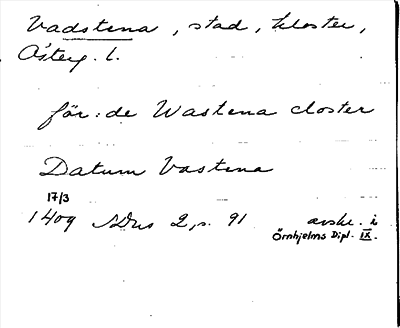 Vadstena, stad, kloster,
Österg. l.
för: de Wastena closter
Datum Vastena
17/3
1409 SDns 2, s. 91 avskr. i
Örnhjelms Dipl. IX.